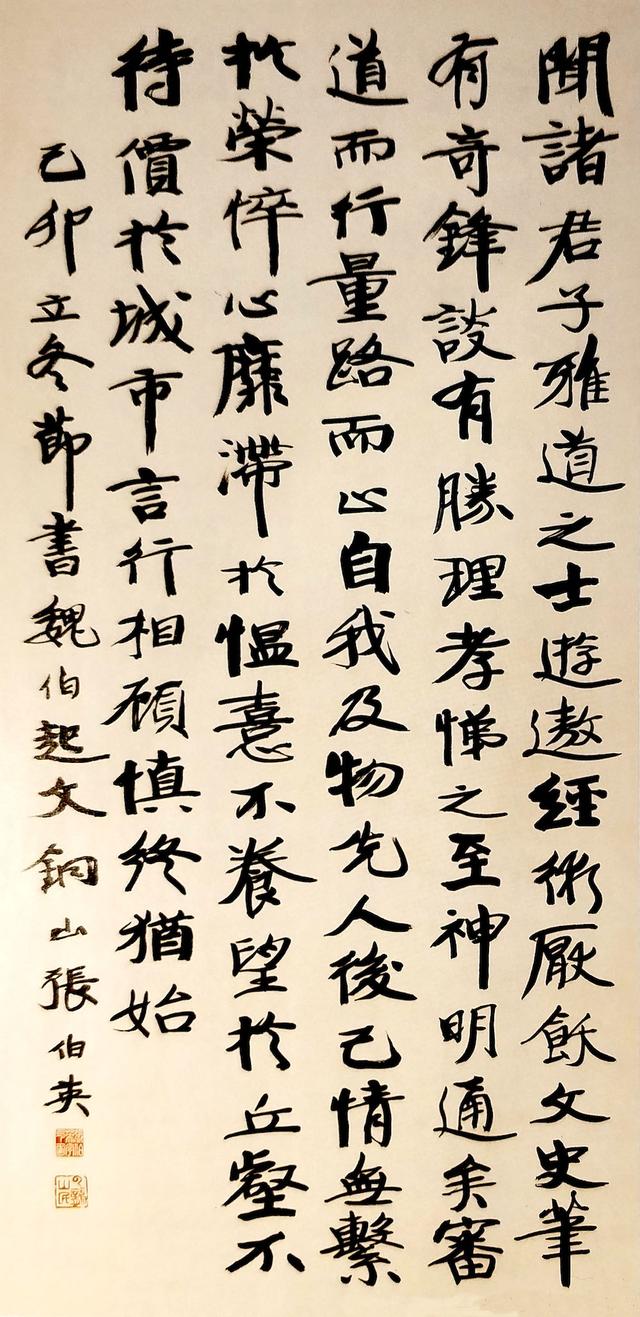 聞諸君子雅道之士遊遨經術厭飫文史筆
有奇鋒談有勝理孝悌之至神明通矣審
道而行量路而止自我及物先人後己情無繫
於榮悴心靡滯於慍憙不養望於丘壑不
待價於城市言行相顧慎終猶始
己卯立冬節書魏伯起文銅山張伯英